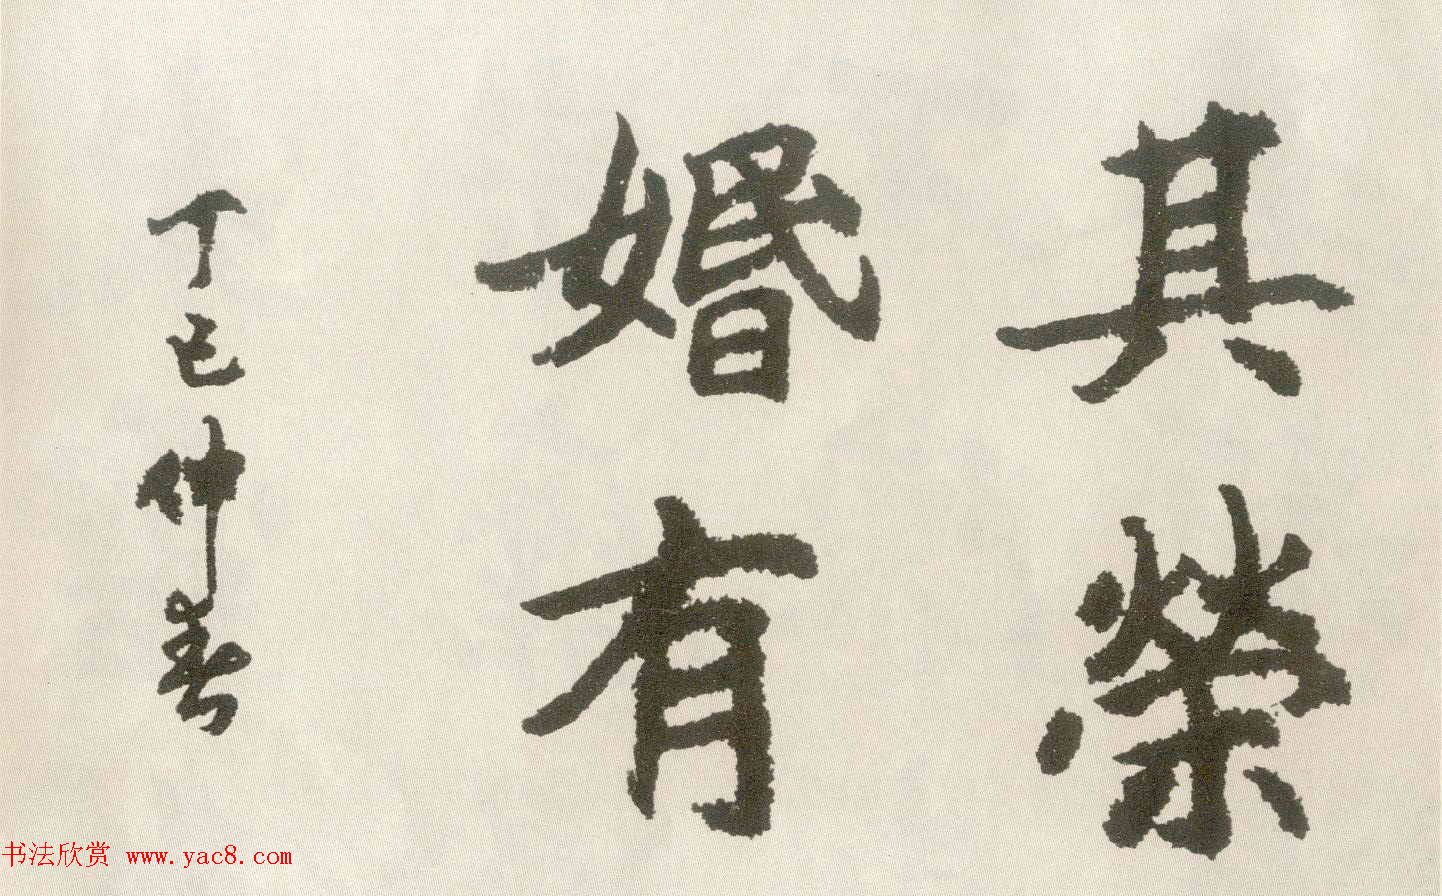 其榮
婚有
丁巳仲春
书法欣赏 www.yac8.com